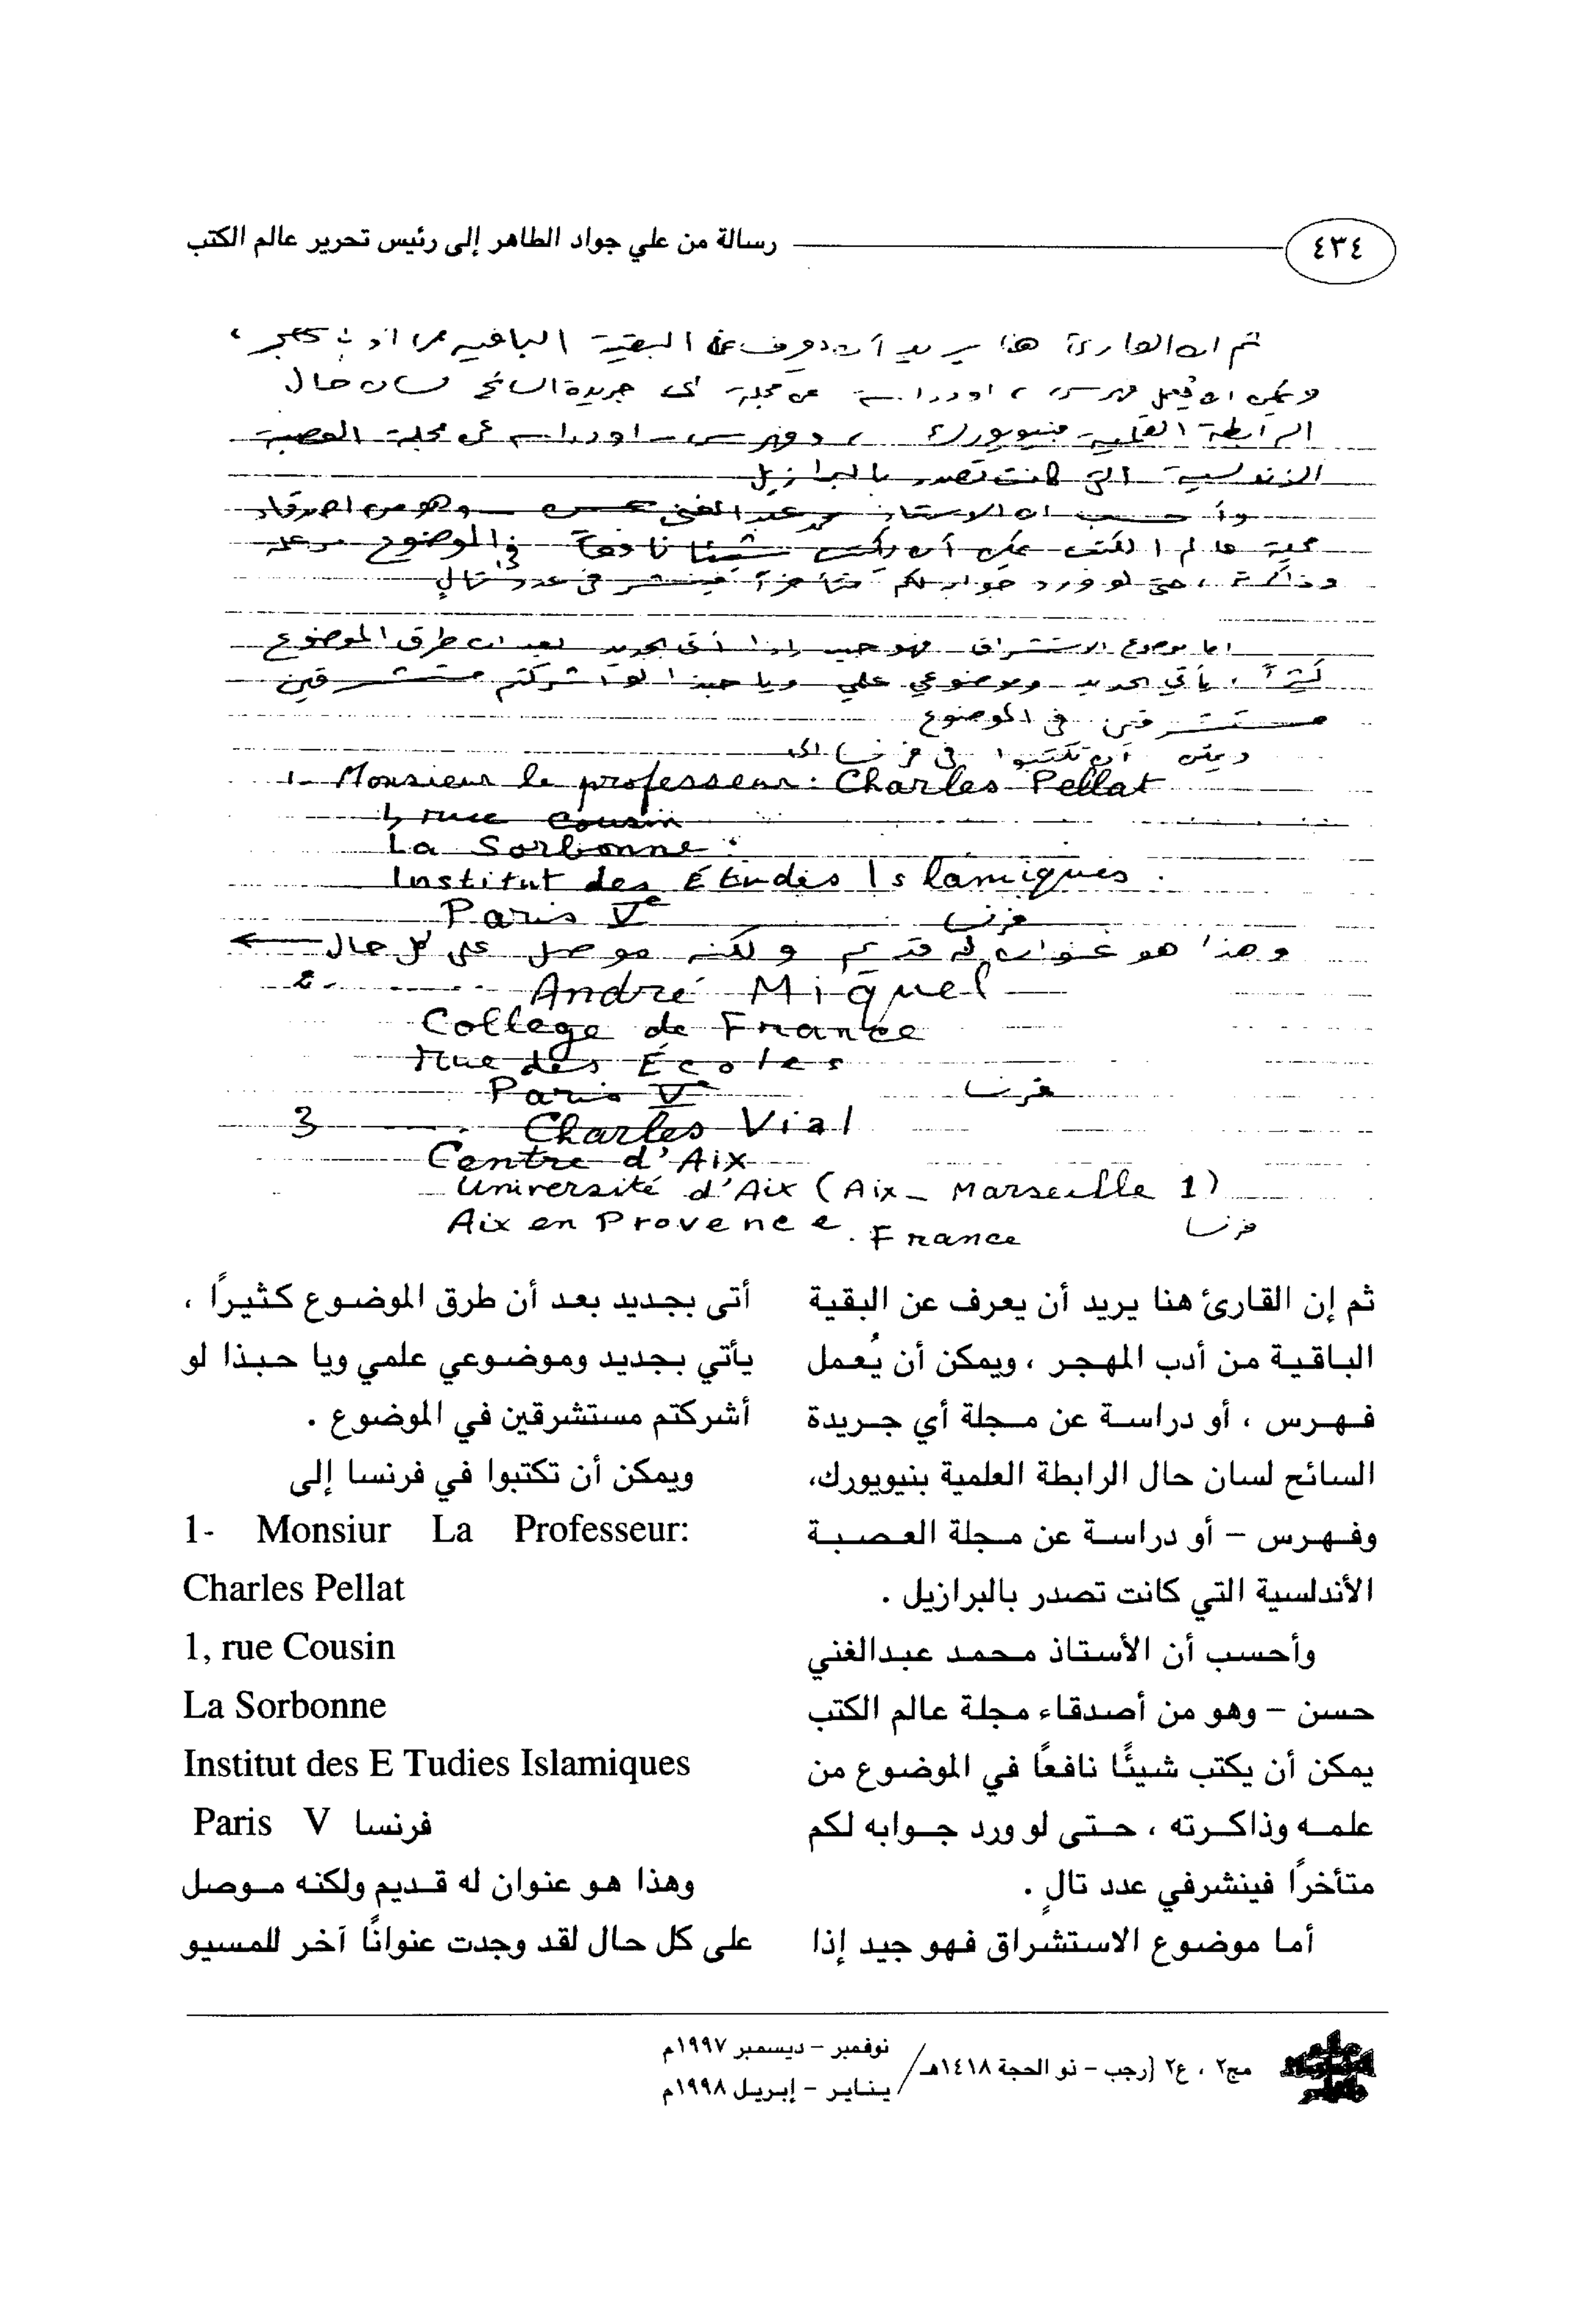 ٤٣٤
رسالة من علي جواد الطاهر إلى رئيس تحرير عالم الكتب
ثم ان القارئ هنا يريد أن يعرف عن البقية الباقية من ادب المهجر،
ويمكن ان يُعمل فهرس، او دراسة عن مجلة اي جريدة السائح لسان حال
الرابطة القلمية بنيويورك، وفهرس - او دراسة عن مجلة العصبة
الاندلسية التي كانت تصدر بالبرازيل
وأحسب ان الاستاذ محمد عبد الغني حسن - وهو من اصدقاء
مجلة عالم الكتب يمكن أن يكتب شيئا نافعاً في الموضوع من علمه
وذاكرته، حتى لو ورد جوابه لكم متأخراً فينشر في عدد تالٍ
اما موضوع الاستشراق فهو جيد إذا أتى بجديد بعد ان طرق الموضوع
كثيراً، يأتي بجديد وموضوعي علمي ويا حبذا لو اشركتم مستشرقين
مستشرقين في الموضوع
ويمكن أن تكتبوا في فرنسا الى
1- Monsieur le professeur: Charles Pellat
1, rue Cousin
La Sorbonne.
Institut des Études Islamiques.
Paris Ve فرنسا
وهذا هو عنوان له قديم ولكنه موصل على كل حال ←
2- André Miquel
College de France
rue des Écoles
Paris Ve فرنسا
3 Charles Vial
Centre d'Aix
Université d'Aix (Aix - Marseille 1)
Aix en Provence. France فرنسا
ثم إن القارئ هنا يريد أن يعرف عن البقية
الباقية من أدب المهجر ، ويمكن أن يُعمل
فهرس ، أو دراسة عن مجلة أي جريدة
السائح لسان حال الرابطة العلمية بنيويورك،
وفهرس – أو دراسة عن مجلة العصبة
الأندلسية التي كانت تصدر بالبرازيل .
وأحسب أن الأستاذ محمد عبدالغني
حسن – وهو من أصدقاء مجلة عالم الكتب
يمكن أن يكتب شيئًا نافعًا في الموضوع من
علمه وذاكرته ، حتى لو ورد جوابه لكم
متأخرًا فينشرفي عدد تالٍ .
أما موضوع الاستشراق فهو جيد إذا
أتى بجديد بعد أن طرق الموضوع كثيرًا ،
يأتي بجديد وموضوعي علمي ويا حبذا لو
أشركتم مستشرقين في الموضوع .
ويمكن أن تكتبوا في فرنسا إلى
1- Monsiur La Professeur:
Charles Pellat
1, rue Cousin
La Sorbonne
Institut des E Tudies Islamiques
Paris V فرنسا
وهذا هو عنوان له قديم ولكنه موصل
على كل حال لقد وجدت عنوانًا آخر للمسيو
مج٢ ، ع٢ (رجب – ذو الحجة ١٤١٨هـ/
نوفمبر – ديسمبر ١٩٩٧م
يناير – إبريل ١٩٩٨م